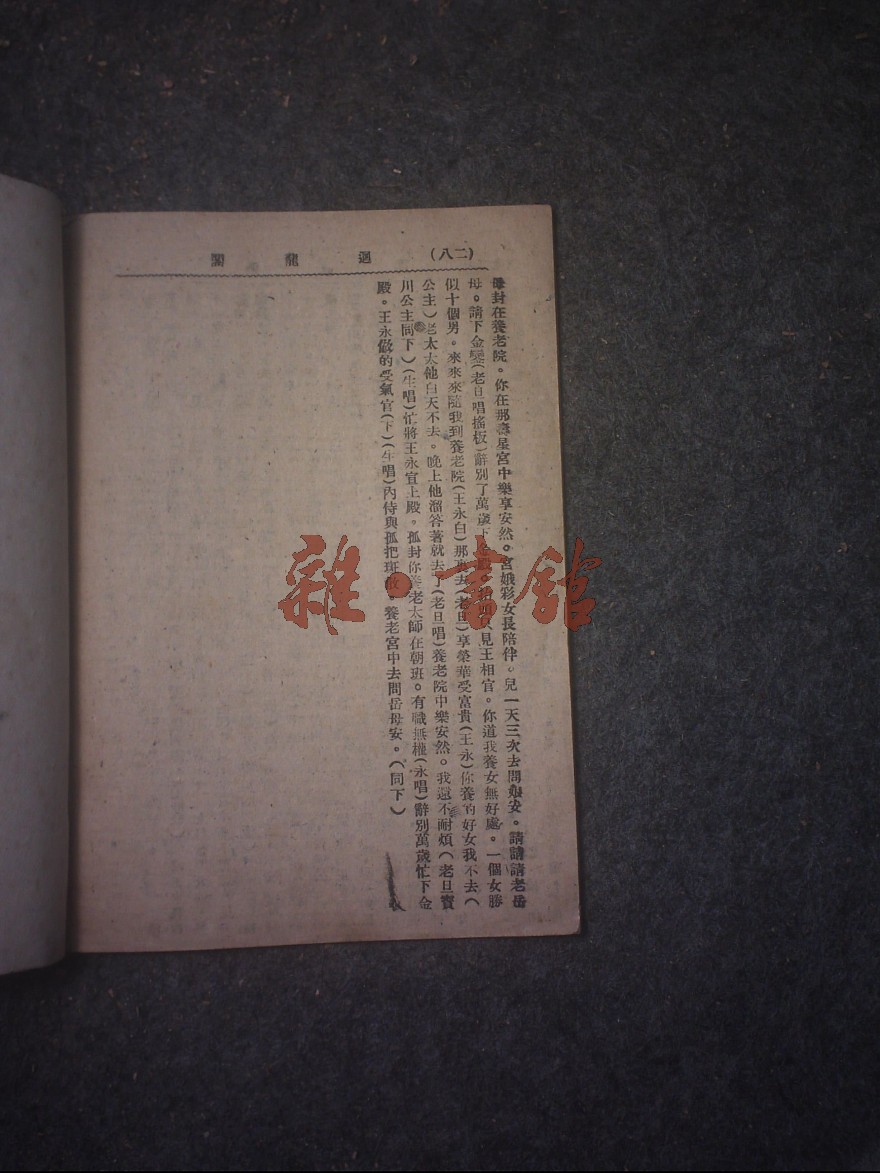 (二八) 迴龍閣
母封在養老院。你在那壽星宮中樂享安然。宮娥彩女長陪伴。兒一天三次去問娘安。請請請老岳
母。請下金鑾(老旦唱搖板)辭別了萬歲下金殿。見王相官。你道我養女無好處。一個女勝
似十個男。來來來隨我到養老院(王永白)那裏去(老旦)享榮華受富貴(王永)你養的好女我不去(
公主)老太太他白天不去。晚上他溜答著就去了(老旦唱)養老院中樂安然。我還不耐煩(老旦寶
川公主同下)(生唱)忙將王永宣上殿。孤封你養老太師在朝班。有職無權(永唱)辭別萬歲忙下金
殿。王永做的受氣官(下)(生唱)內侍與孤把班散。養老宮中去問岳母安。(同下)
雜·書館